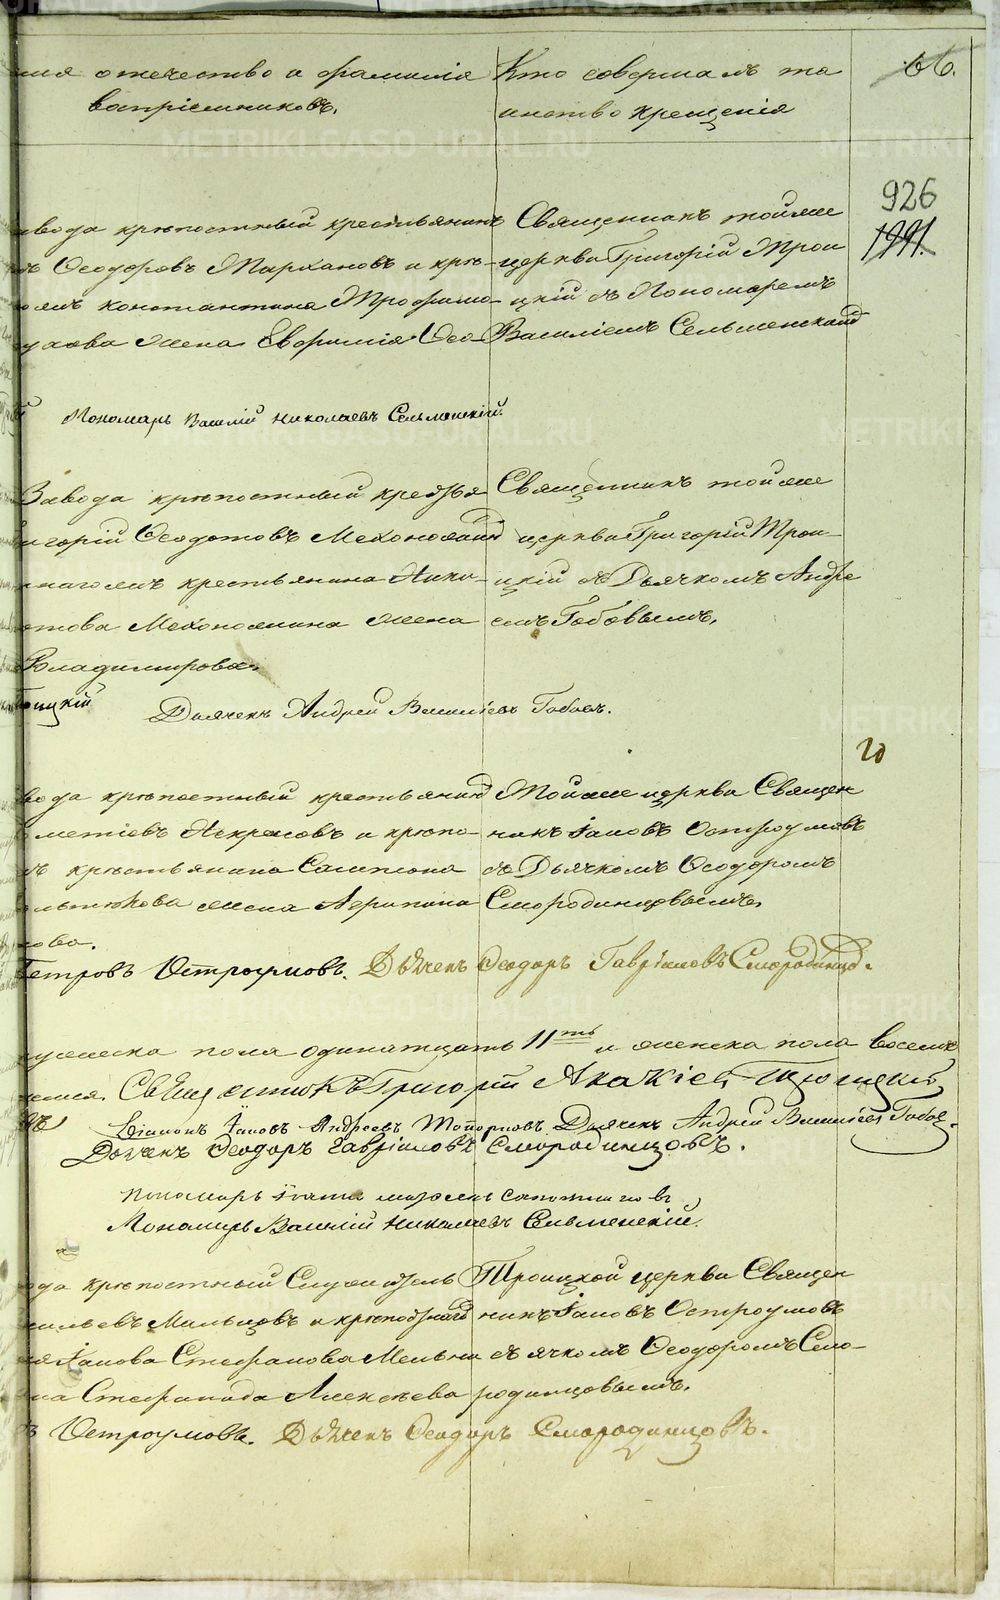 отечество и фамилія
воспріемниковъ.
Кто совершалъ та
инство крещенія
66.
926
1991.
завода крѣпостный крестьянинъ
Ѳеодоровъ Мархановъ и крѣ-
Константина Трофимо-
жена Евфимія Ѳео-
Священникъ тойже
церкви Григорій Трои
цкій съ Пономаремъ
Василіемъ Сельменский
Пономарь Василій Николаевъ Сельменскій.
Завода крѣпостный крестья
Григорій Ѳеодотовъ Мехоношин
крестьянина Ники-
Мехоношина жена
Владимирова.
Священникъ тойже
церкви Григорій Трои-
цкій съ Дьячкомъ Андре
емъ Гобовымъ.
Троицкій Дьячекъ Андрей Василіевъ Гобовъ.
20
вода крѣпостный крестьянин
Некрасовъ и крѣпо-
крестьянина Сампсона
жена Агрипина
Тойже церкви Священ
никъ Іаковъ Остроумовъ
съ Дьячкомъ Ѳеодоромъ
Смородинцовымъ.
Петровъ Остроумовъ. Дьячекъ Ѳеодоръ Гавріиловъ Смородинцо.
мужеска пола одинатцать 11ть и женска пола восемь
Священникъ Григорій Акакіев Троицкій
Діаконъ Іаковъ Андреевъ Топорковъ Дьячекъ Андрей Василіев Гобов.
Дьячекъ Ѳеодоръ Гавріиловъ Смородинцовъ.
пономарь
Пономарь Василій Николаевъ Сельменскій.
вода крѣпостный Служитель
Мальцовъ и крѣпостнаго
Іакова Стефанова Мельни
Стефанида Алексѣева
Троицкой церкви Священ
никъ Іаковъ Остроумовъ
съ ячкомъ Ѳеодоромъ Смо-
родинцовымъ.
Остроумовъ. Дьячекъ Ѳеодоръ Смородинцовъ.
METRIKI.GASO-URAL.RU